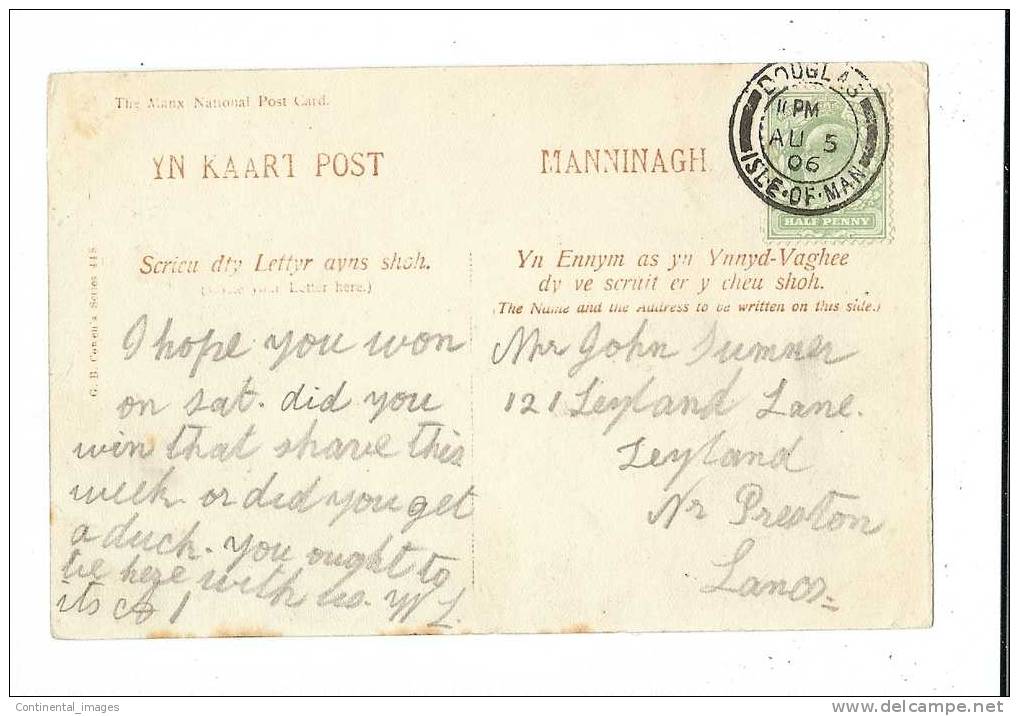 The Manx National Post Card.
YN KAART POST
MANNINAGH
DOUGLAS
11 PM
AU 5
06
ISLE·OF·MAN
HALF PENNY
G. B. Cowen's Series 448
Scrieu dty Lettyr ayns shoh.
(Write your Letter here.)
I hope you won
on sat. did you
win that shave this
week or did you get
a duck. you ought to
be here with us. W L.
its A 1
Yn Ennym as yn Ynnyd-Vaghee
dy ve scruit er y cheu shoh.
(The Name and the Address to be written on this side.)
Mr John Sumner
121 Leyland Lane.
Leyland
Nr Preston
Lancs
Continental_images
www.delcampe.net